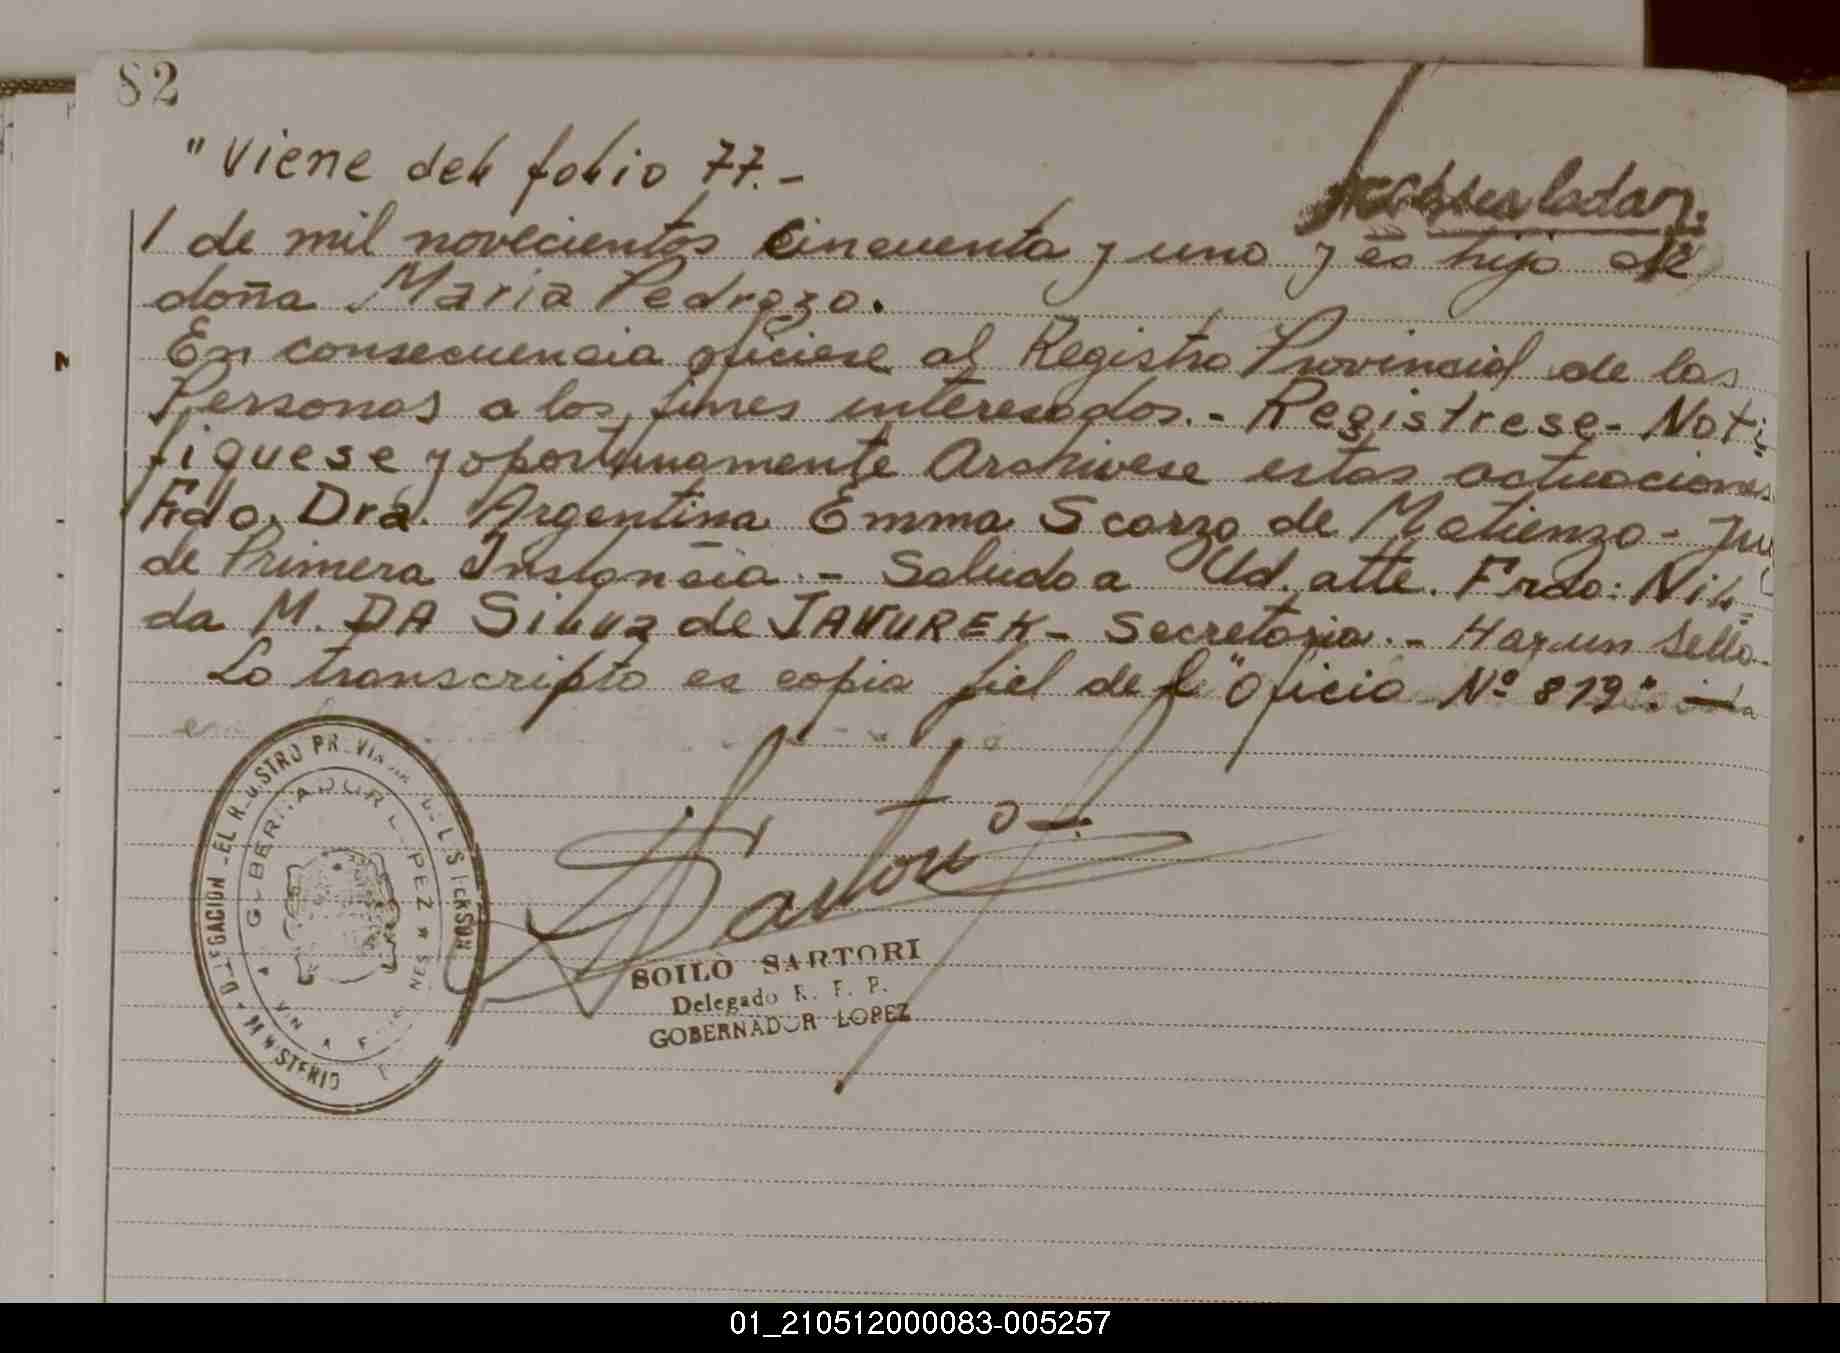 82
"Viene del folio 77.-
1 de mil novecientos cincuenta y uno y es hijo de
doña Maria Pedrozo.
En consecuencia ofíciese al Registro Provincial de las
Personas a los fines interesados.- Registrese- Noti-
fiquese y oportunamente Archivese estas actuaciones
Frdo. Dra. Argentina Emma Scarzo de Matienzo - Jue
de Primera Instancia.- Saludo a Ud. atte. Frdo: Nil-
da M. DA Silva de JAWUREK- Secretaria.- Hay un sello.
Lo transcripto es copia fiel del "Oficio Nº 819".-
Sartori
SOILO SARTORI
Delegado R. P. P.
GOBERNADOR LOPEZ
DELEGACION DEL REGISTRO PROVINCIAL DE LAS PERSONAS
MINISTERIO
GOBERNADOR LOPEZ
01_210512000083-005257